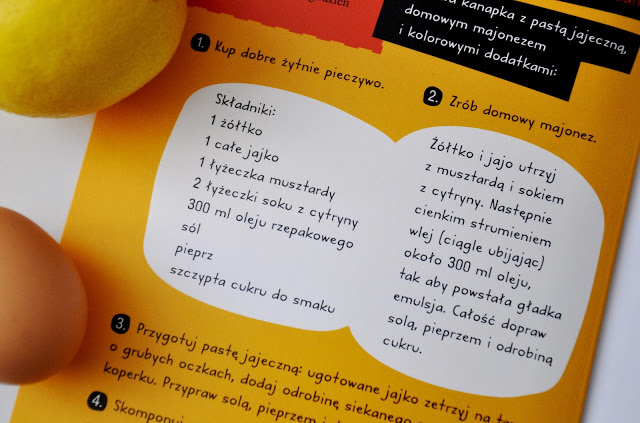 kanapka z pastą jajeczną,
domowym majonezem
i kolorowymi dodatkami:
1. Kup dobre żytnie pieczywo.
Składniki:
1 żółtko
1 całe jajko
1 łyżeczka musztardy
2 łyżeczki soku z cytryny
300 ml oleju rzepakowego
sól
pieprz
szczypta cukru do smaku
2. Zrób domowy majonez.
Żółtko i jajo utrzyj
z musztardą i sokiem
z cytryny. Następnie
cienkim strumieniem
wlej (ciągle ubijając)
około 300 ml oleju,
tak aby powstała gładka
emulsja. Całość dopraw
solą, pieprzem i odrobiną
cukru.
3. Przygotuj pastę jajeczną: ugotowane jajko zetrzyj na
o grubych oczkach, dodaj odrobinę siekanego
koperku. Przypraw solą, pieprzem i
4. Skomponuj